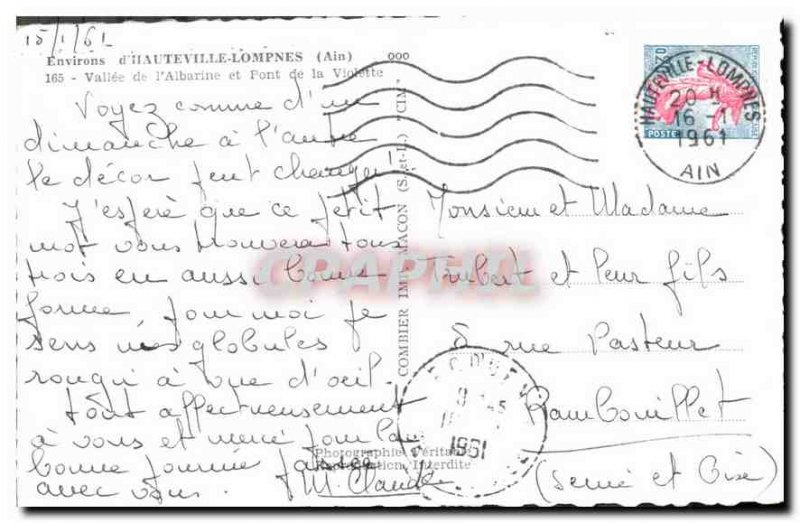 15/1/61
Environs d'HAUTEVILLE-LOMPNES (Ain) 000
165 - Vallée de l'Albarine et Pont de la Violette
Voyez comme d'un
dimanche à l'autre
le décor peut changer!
J'espère que ce petit
mot vous trouvera tous
trois en aussi bonne
forme. Pour moi je
sens mes globules
rougir à vue d'oeil.
Tout affectueusement
à vous et merci pour la
bonne journée passée
avec vous. M. Claude
Photographie Véritable
Reproduction Interdite
COMBIER IMP. MACON (S.-et-L.) "CIM"
HAUTEVILLE-LOMPNES
20 H
16 -1
1961
AIN
POSTES
Monsieur et Madame
Trubert et leur fils
8 rue Pasteur
Rambouillet
(Seine et Oise)
1961
CPAPHIL